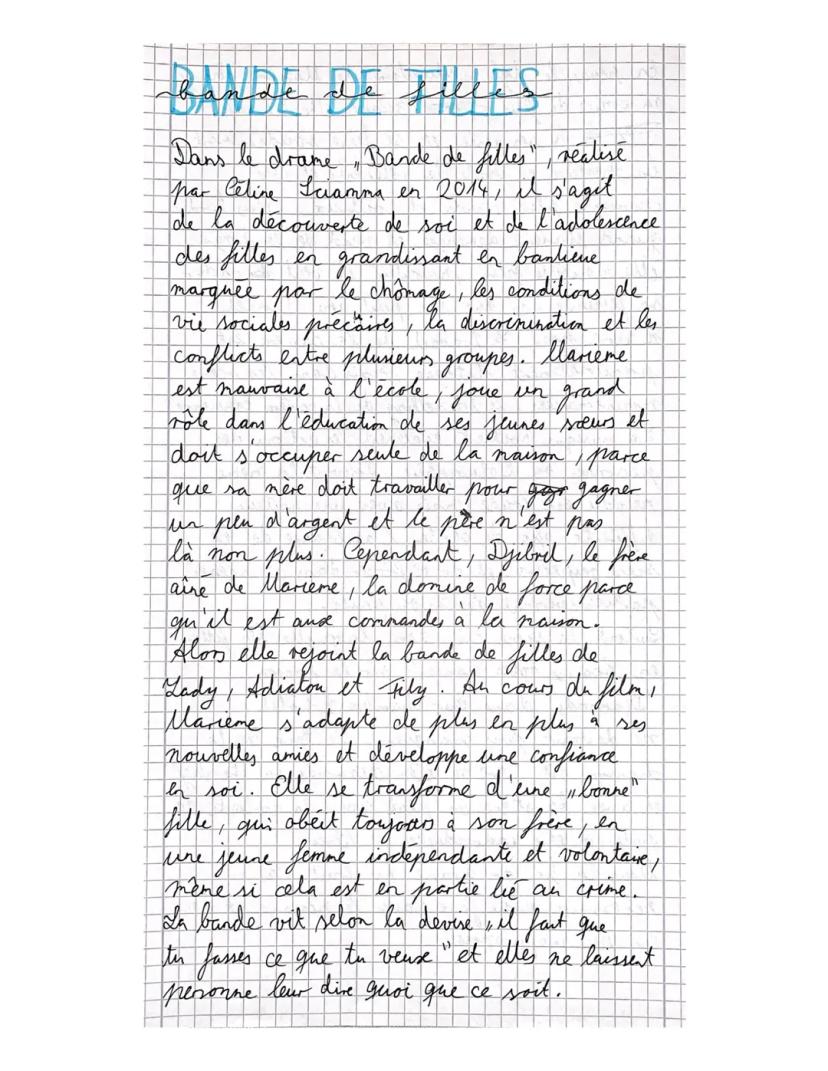 BANDE DE FILLES
bande de filles
Dans le drame „Bande de filles", réalisé
par Céline Sciamma en 2014, il s'agit
de la découverte de soi et de l'adolescence
des filles en grandissant en banlieue
marquée par le chômage, les conditions de
vie sociales précaires, la discrimination et les
conflicts entre plusieurs groupes. Marieme
est mauvaise à l'école, joue un grand
rôle dans l'éducation de ses jeunes sœurs et
doit s'occuper seule de la maison, parce
que sa mère doit travailler pour gagner
un peu d'argent et le père n'est pas
là non plus. Cependant, Djibril, le frère
aîné de Marieme, la domine de force parce
qu'il est aux commandes à la maison.
Alors elle rejoint la bande de filles de
Lady, Adiatou et Fily. Au cours du film,
Marieme s'adapte de plus en plus à ses
nouvelles amies et développe une confiance
en soi. Elle se transforme d'une „bonne"
fille, qui obéit toujours à son frère, en
une jeune femme indépendante et volontaire,
même si cela est en partie lié au crime.
La bande vit selon la devise „il faut que
tu fasses ce que tu veux" et elles ne laissent
personne leur dire quoi que ce soit.